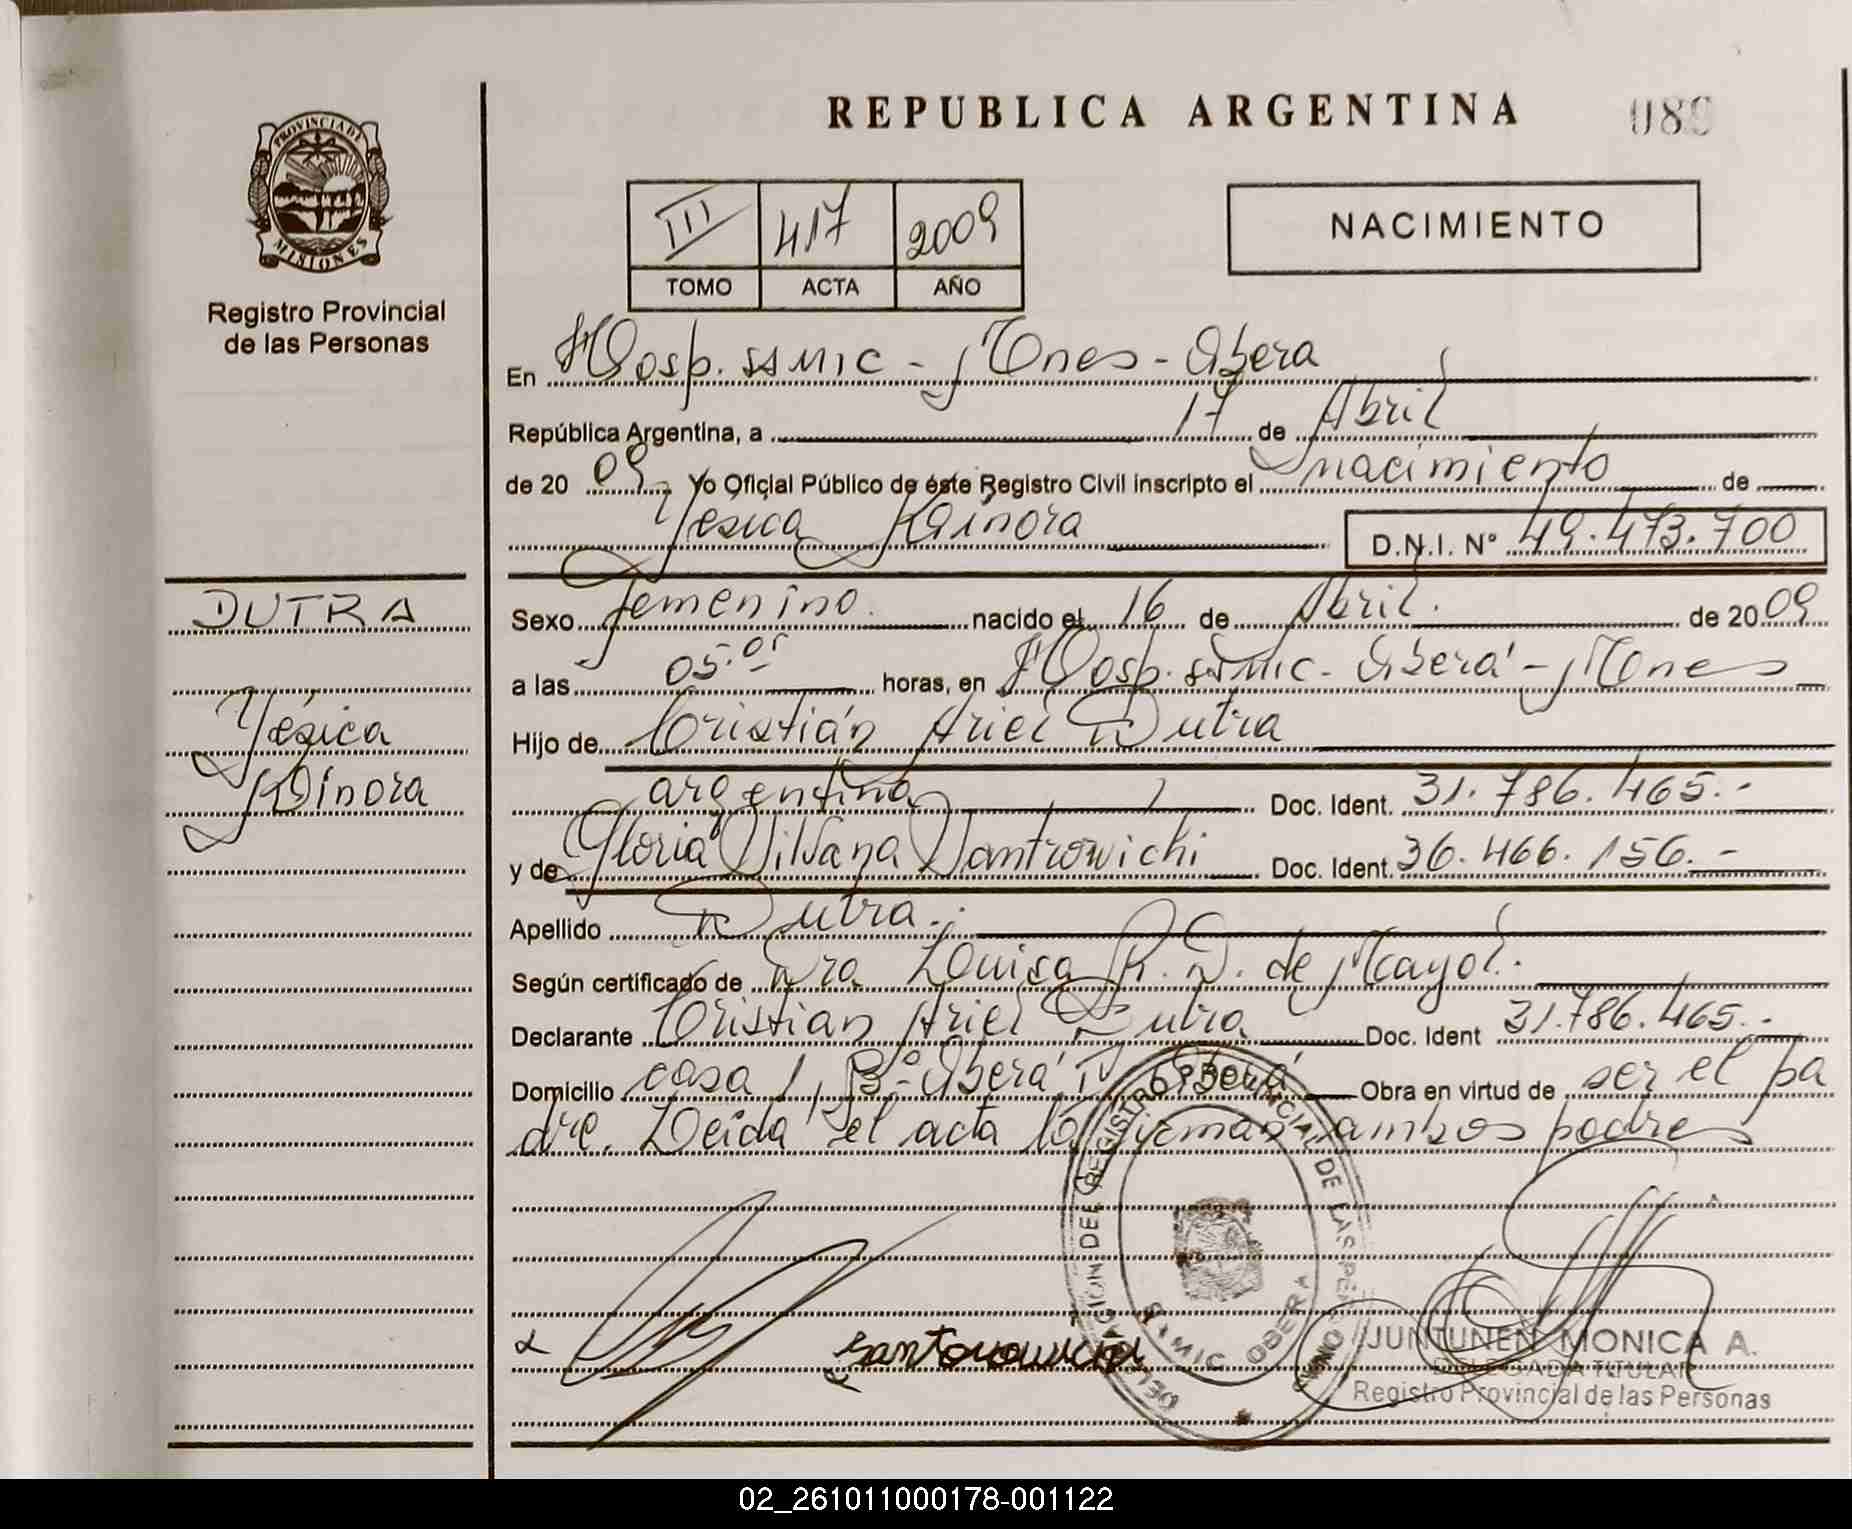 REPUBLICA ARGENTINA
089
PROVINCIA DE
MISIONES
Registro Provincial
de las Personas
III 417 2009
TOMO ACTA AÑO
NACIMIENTO
En Hosp. SAMIC - Mnes - Oberá
República Argentina, a 17 de Abril
de 20 09 Yo Oficial Público de éste Registro Civil inscripto el nacimiento de
Yésica Dinora D.N.I. N° 49.473.700
DUTRA
Yésica
Dinora
Sexo Femenino. nacido el 16 de Abril. de 20 09
a las 05.05 horas, en Hosp. SAMIC - Oberá - Mnes
Hijo de Cristián Ariel Dutra
argentina Doc. Ident. 31.786.465.-
y de Gloria Silvana Santrowichi Doc. Ident. 36.466.156.-
Apellido Dutra.
Según certificado de Dra Louisa R. D. de Mayol.
Declarante Cristian Ariel Dutra Doc. Ident 31.786.465.-
Domicilio casa 1, B°- Oberá IV Oberá Obra en virtud de ser el pa
dre. Leída el acta la firman ambos padres
DELEGACION DEL REGISTRO PROVINCIAL DE LAS PERSONAS
SAMIC OBERA
JUNTUNEN MONICA A.
DELEGADA TITULAR
Registro Provincial de las Personas
02_261011000178-001122